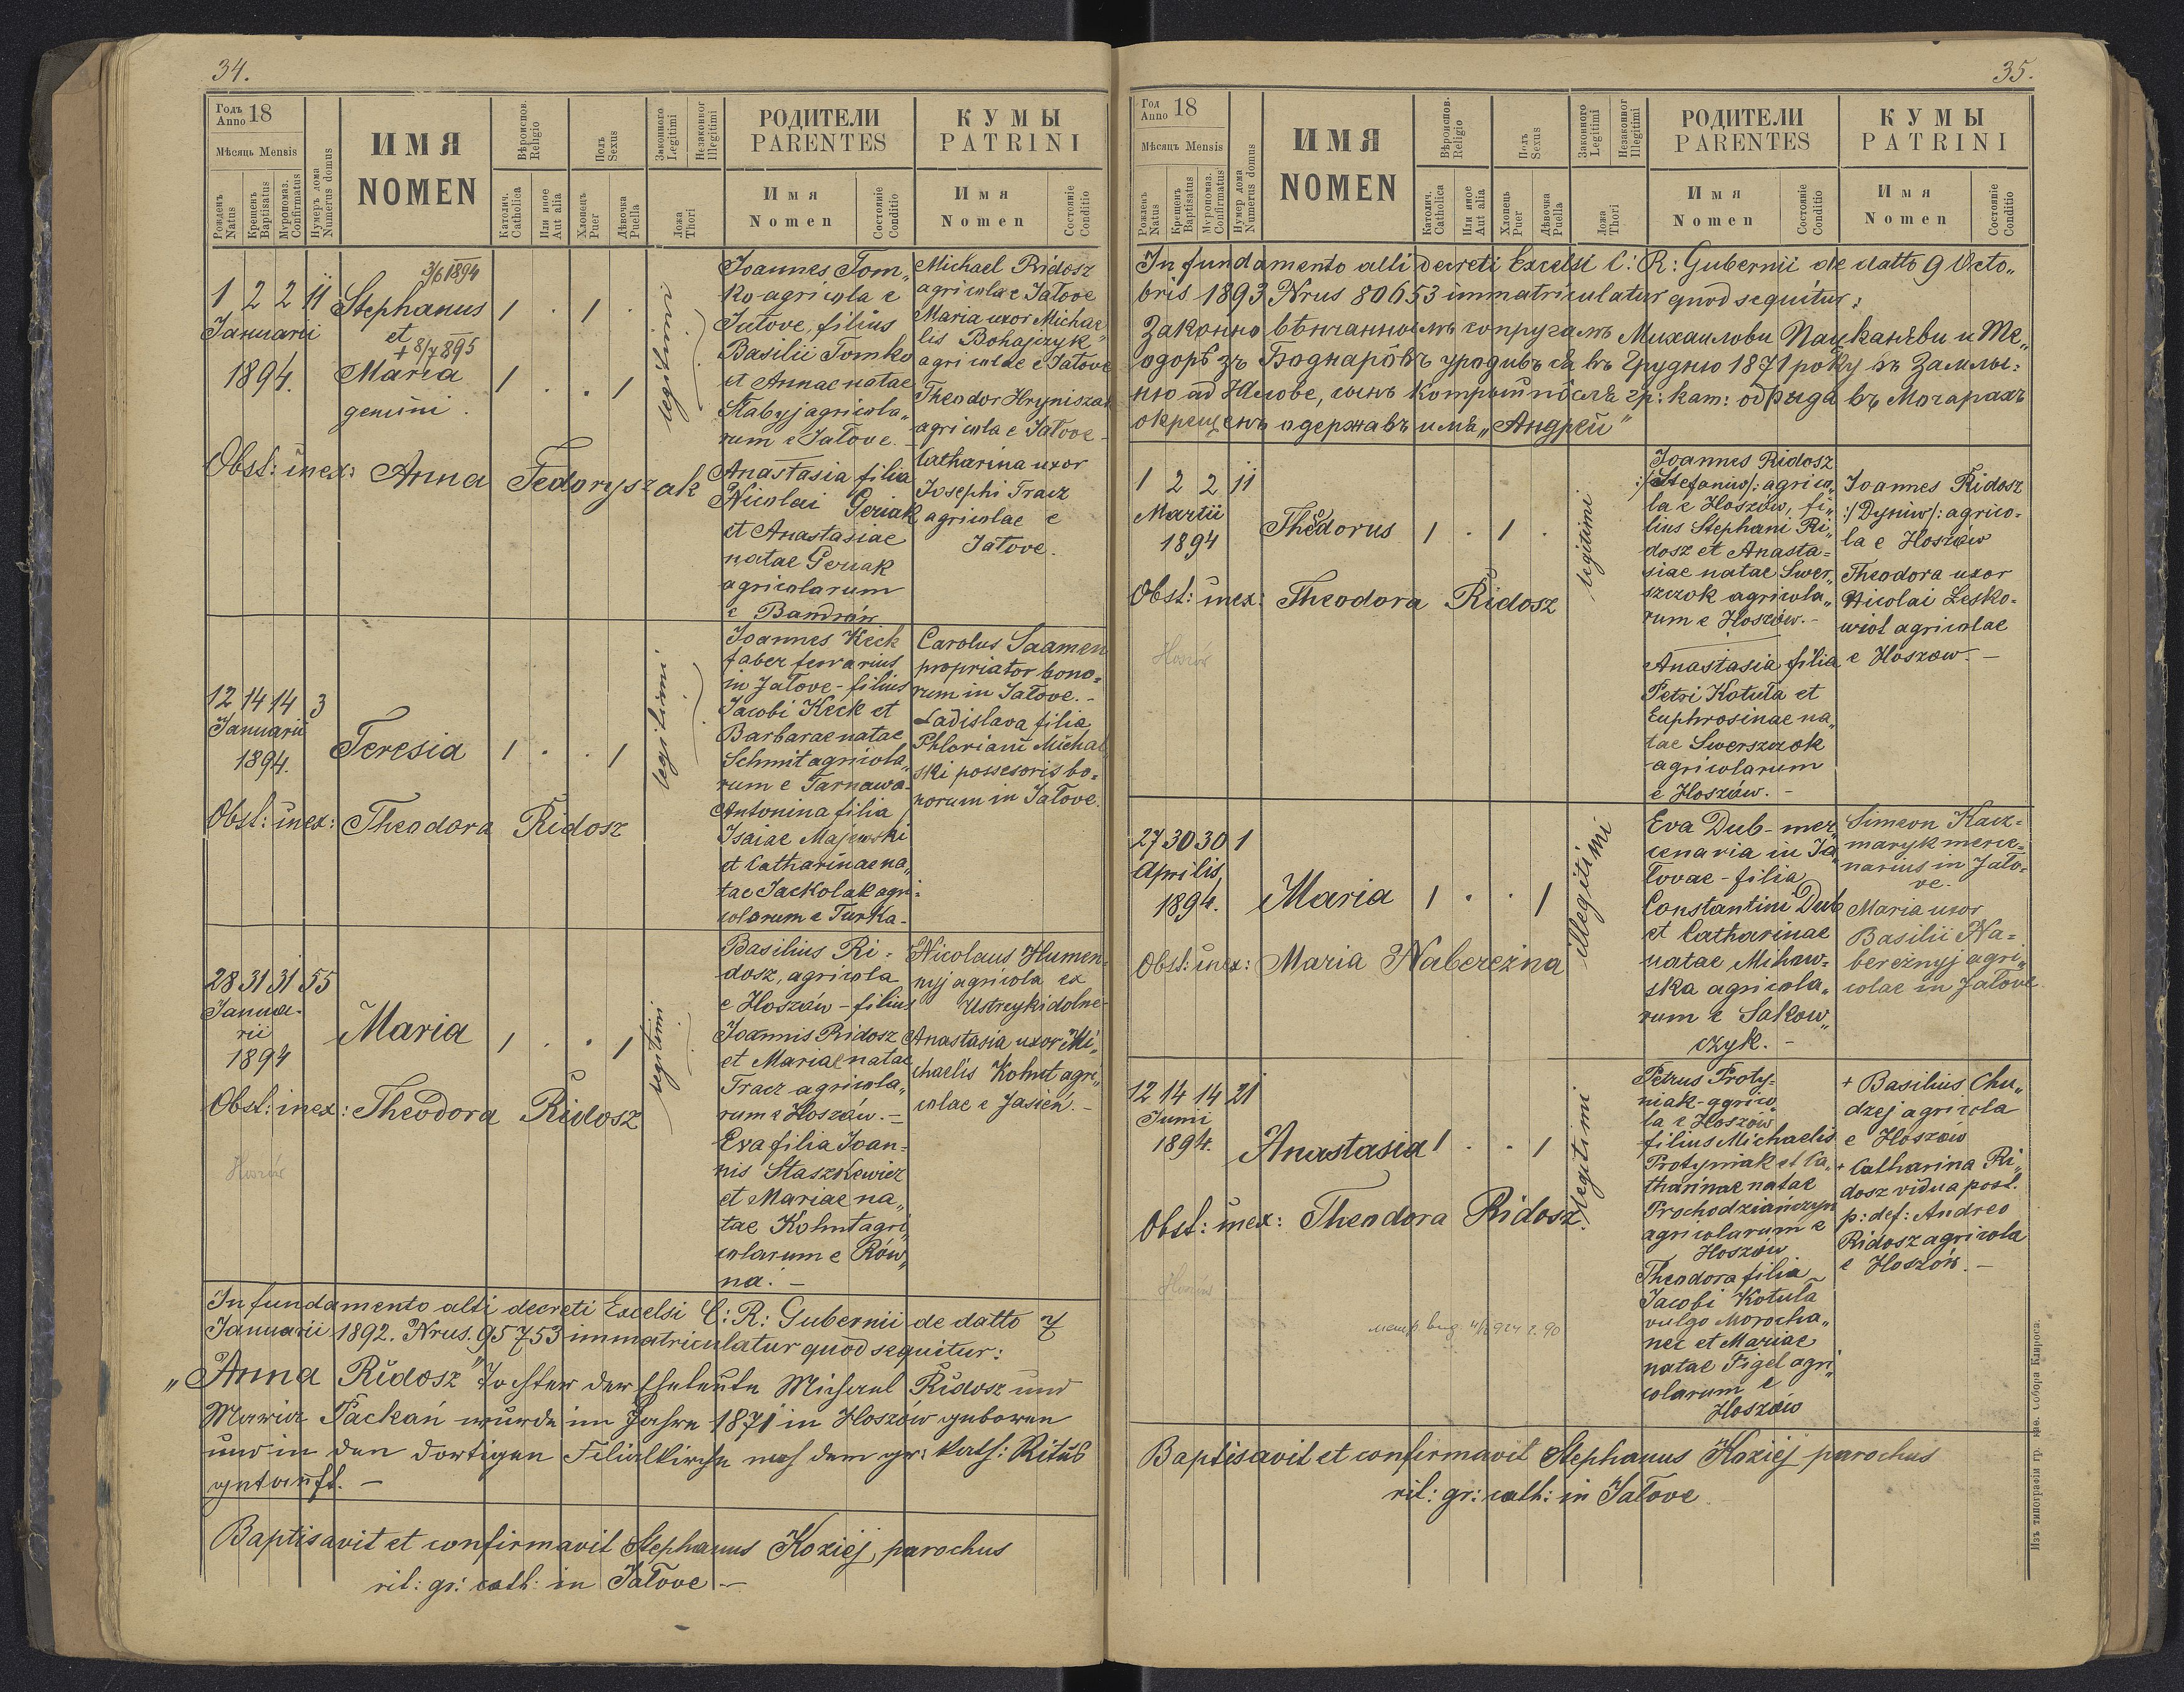 34.
Годъ
Anno 18
Мѣсяцъ Mensis
Рожденъ
Natus
Крещенъ
Baptisatus
Муропомаз.
Confirmatus
Нумеръ дома
Numerus domus
ИМЯ
NOMEN
Вѣроиспов.
Religio
Католич.
Catholica
Или иное
Aut alia
Полъ
Sexus
Хлопецъ
Puer
Дѣвочка
Puella
Законного
Legitimi
Незаконног
Illegitimi
Ложа
Thori
РОДИТЕЛИ
PARENTES
Имя
Nomen
Состояніе
Conditio
КУМЫ
PATRINI
Имя
Nomen
Состояніе
Conditio
1 2 2 11
Januarii
1894.
3/6 1894
Stephanus
et
+ 8/7 895
Maria
gemini.
1 . 1 .
1 . . 1
legitimi
Joannes Tom„
ko agricola e
Jałove, filius
Basilii Tomko
et Annae natae
Słabyj agricola„
rum e Jałove.
Anastasia filia
Nicolai Geriak
et Anastasiae
natae Geriak
agricolarum
e Bandrów
Michael Ridosz
agricola e Jałove
Maria uxor Michae
lis Bohajczyk
agricolae e Jałove
Theodor Hryniszak
agricola e Jałove
Catharina uxor
Josephi Tracz
agricolae e
Jałove.
Obst: inex: Anna Fedoryszak
12 14 14 3
Januarii
1894.
Teresia
1 . . 1
legitimi
Joannes Keck
faber ferrarius
in Jałove - filius
Jacobi Keck et
Barbarae natae
Schmit agricola„
rum e Tarnawa
Antonina filia
Isaiae Majewski
et Catharinae na„
tae Jackolak agri=
colarum e Turka-
Carolus Saamen
propriator bono=
rum in Jałove.-
Ladislava filia
Phloriani Michal
ski possesoris bo=
norum in Jałove.
Obst: inex: Theodora Ridosz
28 31 31 55
Janua-
rii
1894
Maria
1 . . 1
legitimi
Basilius Ri=
dosz, agricola
e Hoszów - filius
Joannis Ridosz
et Mariae natae
Tracz agricola„
rum e Hoszów.-
Eva filia Joan=
nis Staszkewicz
et Mariae na„
tae Kohut agri„
colarum e Rów„
na.-
Nicolaus Humen=
nyj agricola ex
Ustrzyki dolne-
Anastasia uxor Mi„
chaelis Kohut agri„
colae e Jasień.-
Obst: inex: Theodora Ridosz
Hoszów
In fundamento alti decreti Excelsi C: R: Gubernii de datto 7
Januarii 1892. Nrus. 95753 immatriculatur quod sequitur:
„Anna Ridosz" Tochter der Eheleute Michael Ridosz und
Maria Packań wurde im Jahre 1871 in Hoszów geboren
und in der dortigen Filialkirche nach dem gr: kath: Ritus
getauft.-
Baptisavit et confirmavit Stephanus Koziej, parochus
rit: gr: cath: in Jałove.-
35.
Год
Anno 18
Мѣсяцъ Mensis
Рожденъ
Natus
Крещенъ
Baptisatus
Муропомаз.
Confirmatus
Нумер дома
Numerus domus
ИМЯ
NOMEN
Вѣроиспов.
Religio
Католич.
Catholica
Или иное
Aut alia
Полъ
Sexus
Хлопецъ
Puer
Дѣвочка
Puella
Законного
Legitimi
Незаконног
Illegitimi
Ложа
Thori
РОДИТЕЛИ
PARENTES
Имя
Nomen
Состояніе
Conditio
КУМЫ
PATRINI
Имя
Nomen
Состояніе
Conditio
In fundamento alti decreti Excelsi C: R: Gubernii de datto 9 Octo„
bris 1893 Nrus 80653 immatriculatur quod sequitur:
Законно вѣнчаннымъ супругамъ Михаилови Пацканяви и Те„
одорѣ зъ Боднарôвъ уродивъ ся въ Грудню 1871 року въ Замлы=
ню ad Жлобе, сынъ котрый пôсля гр: кат: обряда въ Мочарахъ
окрещенъ одержавъ имя „Андрей"
1 2 2 11
Martii
1894
Theodorus
1 . 1 .
legitimi
Joannes Ridosz
:/Stefaniw/: agrico„
la e Hoszów, fi„
lius Stephani Ri„
dosz et Anasta=
siae natae Swer„
szczok agricola„
rum e Hoszów.-
Anastasia filia
Petri Kotuła et
Euphrosinae na„
tae Swerszczok
agricolarum
e Hoszów.-
Joannes Ridosz
:/Dyniw/: agrico=
la e Hoszów
Theodora uxor
Nicolai Lesko=
wiat agricolae
e Hoszow.-
Obst: inex: Theodora Ridosz
Hoszów
27 30 30 1
Aprilis
1894.
Maria
1 . . 1
illegitimi
Eva Dub - mer„
cenaria in Ja„
łovae - filia
Constantini Dub
et Catharinae
natae Mihow=
ska agricola„
rum e Sakow„
czyk.-
Simeon Kacz=
maryk merce=
narius in Jało=
ve.
Maria uxor
Basilii Na=
bereżnyj agri„
colae in Jałove
Obst: inex: Maria Nabereżna
12 14 14 21
Junii
1894.
Anastasia
1 . . 1
legitimi
Petrus Proty-
niak - agrico„
la e Hoszów
filius Michaelis
Protyniak et Ca„
tharinae natae
Prochodziańczyn
agricolarum e
Hoszów
Theodora filia
Jacobi Kotuła
vulgo Morocha„
nec et Mariae
natae Figel agri„
colarum e
Hoszów
+ Basilius Chu„
dzej agricola
e Hoszów
+ Catharina Ri„
dosz vidua post.
p: def: Andreo
Ridosz agricola
e Hoszów.-
Obst: inex: Theodora Ridosz.
Hoszów
Baptisavit et confirmavit Stephanus Koziej parochus
rit: gr: cath: in Jałove.